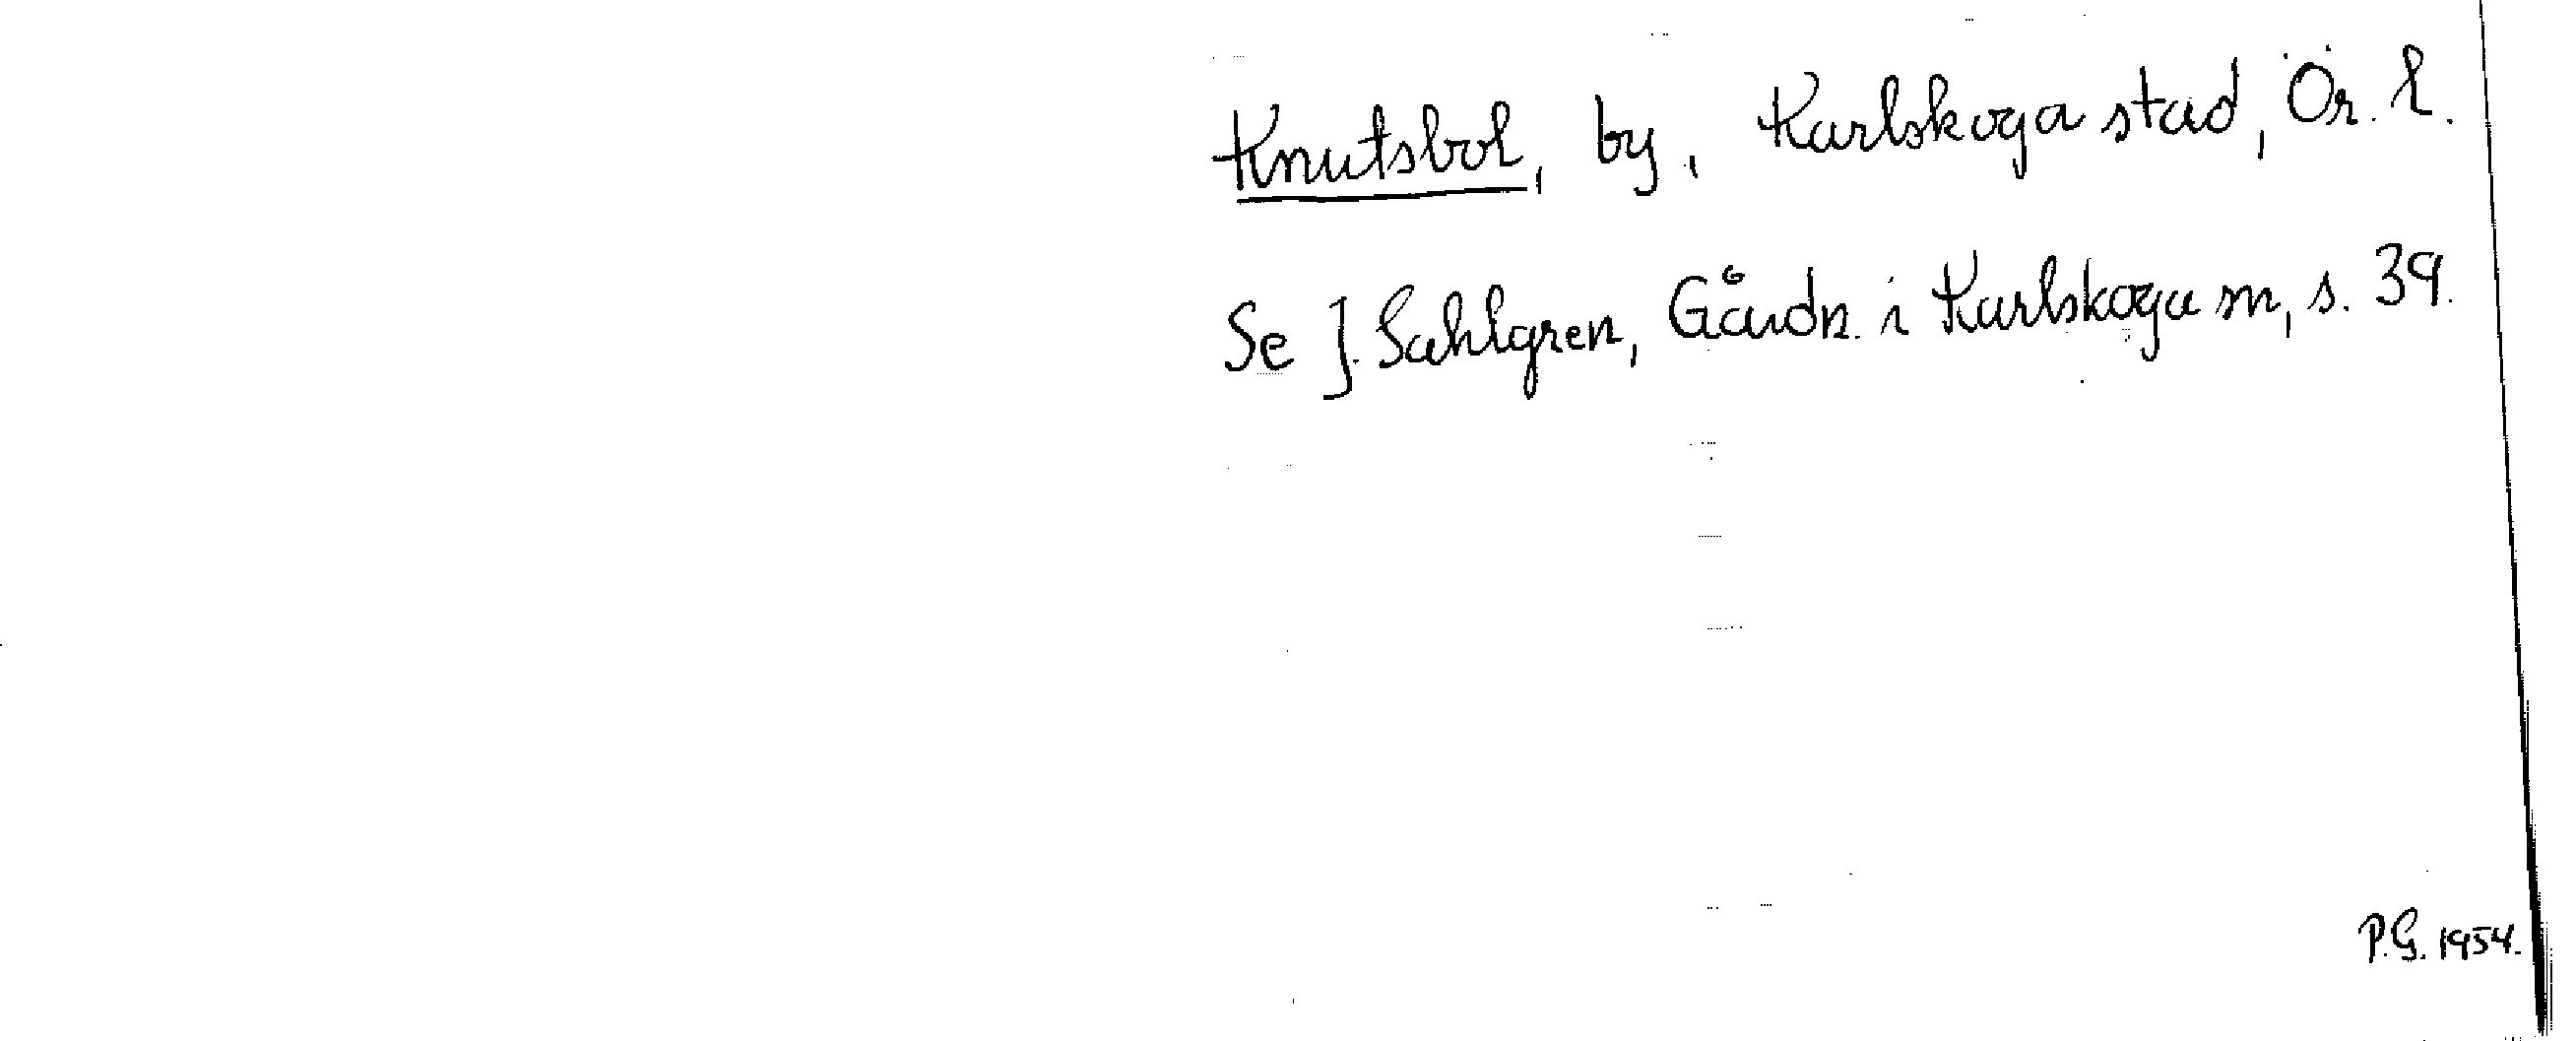 Knutsbol, by, Karlskoga stad, Ör. l.
Se J. Sahlgren, Gårdn. i Karlskoga m, s. 39.
P.G. 1954.